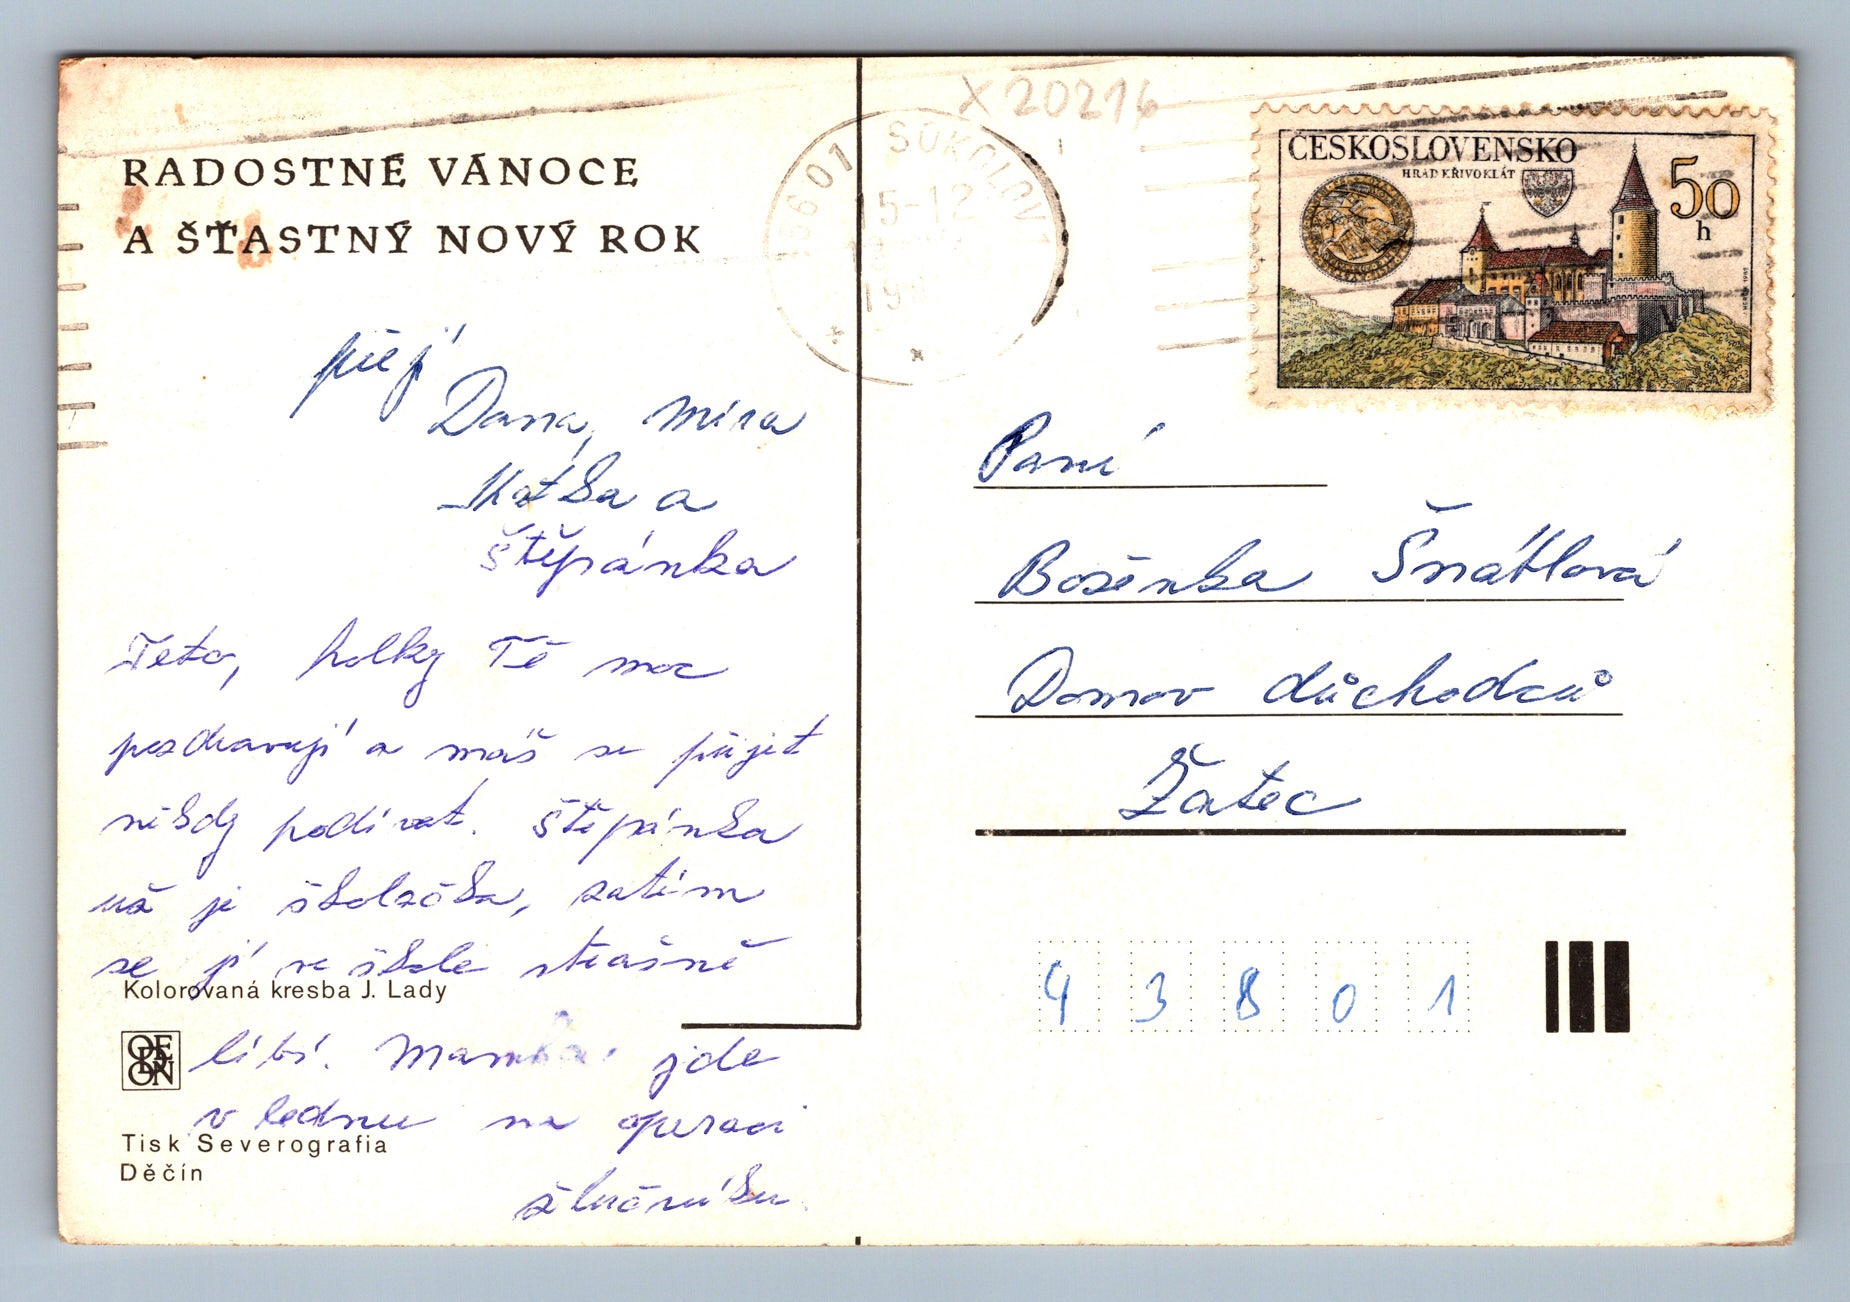 RADOSTNÉ VÁNOCE
A ŠŤASTNÝ NOVÝ ROK
přejí
Dana, Míra
Katka a
Štěpánka
Teto, holky Tě moc
pozdravují a máš se přijet
někdy podívat. Štěpánka
už je školačka, zatím
se jí ve škole strašně
Kolorovaná kresba J. Lady
líbí. Mamka jde
v lednu na operaci
Tisk Severografia
Děčín
žlučníku.
ODEON
X 20216
356 01 SOKOLOV 1
15-12
ČESKOSLOVENSKO
HRAD KŘIVOKLÁT
50
h
Paní
Boženka Šnátlová
Domov důchodců
Žatec
43801